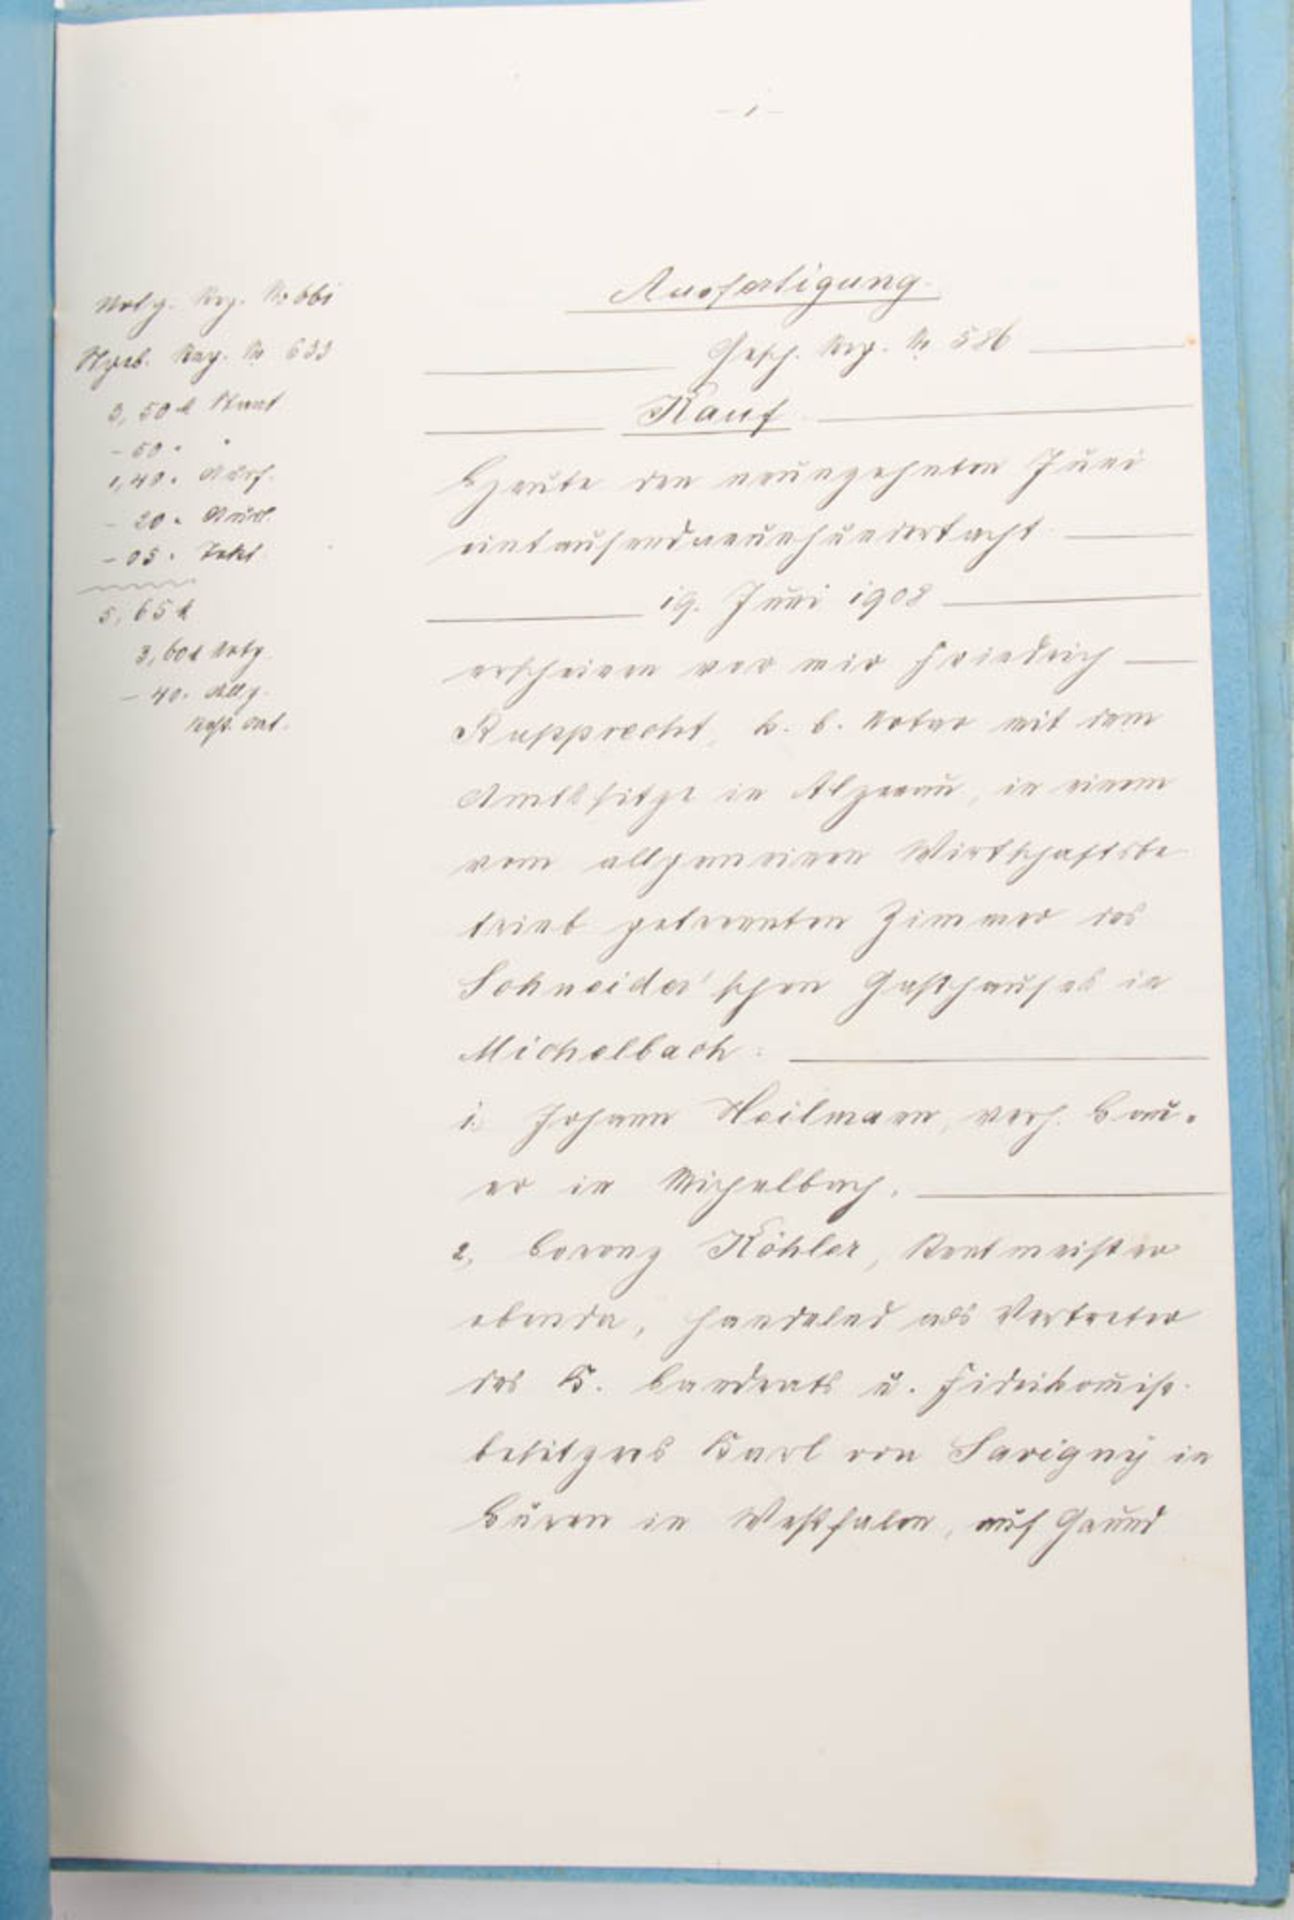 - 1 -
Ausfertigung.
Gesch. Reg. № 586
Kauf
Heute den neunzehnten Juni
eintausendneunhundertacht
19. Juni 1908
erscheinen vor mir Friedrich
Rupprecht, k. b. Notar mit dem
Amtssitze in Alzenau, in einem
vom allgemeinen Wirtschaftsbe
trieb getrennten Zimmer des
Schneider'schen Gasthauses in
Michelbach:
1. Johann Heilmann, verh. Bau-
er in Michelbach,
2, Lorenz Köhler, Rentmeister
ebenda, handelnd als Vertreter
des K. Landrats u. Fideikomiß-
besitzers Karl von Savigny in
Büren in Westfalen, auf Grund
Reg. № 661
Reg. № 633
3,50 M Staat
- 50 " "
1,40 "
- 20 "
- 05 "
5,65 M
3,60 M
- 40 "